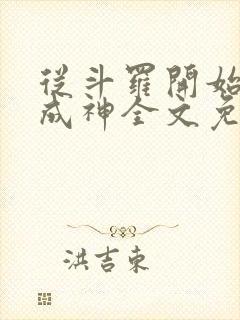 從斗羅開始
成神全文免
洪吉東